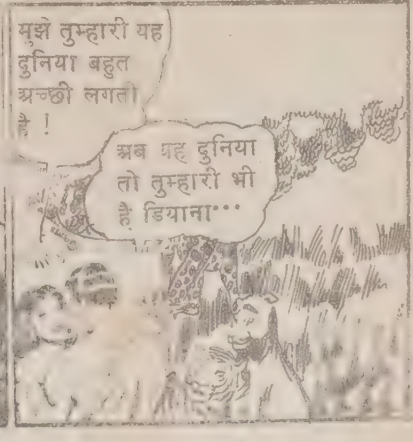 मुझे तुम्हारी यह
दुनिया बहुत
अच्छी लगती
है !
अब यह दुनिया
तो तुम्हारी भी
है डियाना...